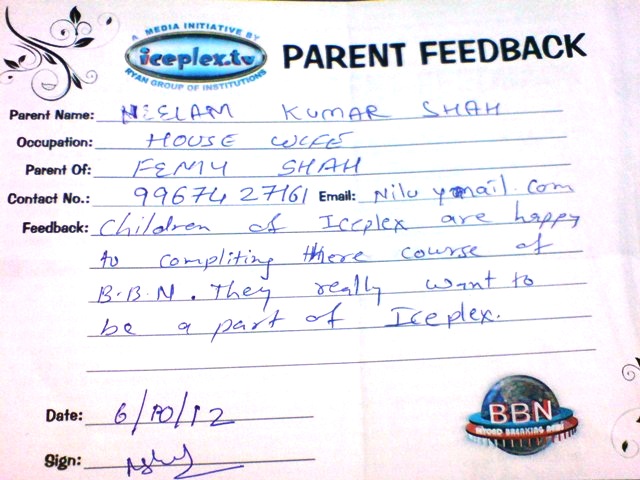 A MEDIA INITIATIVE BY
iceplex.tv
RYAN GROUP OF INSTITUTIONS
PARENT FEEDBACK
Parent Name: NEELAM KUMAR SHAH
Occupation: HOUSE WIFE
Parent Of: FENIY SHAH
Contact No.: 99674 27161 Email: Nilu ymail.com
Feedback: Children of Iceplex are happy
to compliting there course of
B.B.N. They really want to
be a part of Iceplex.
Date: 6/10/12
Sign:
BBN
BEYOND BREAKING NEWS